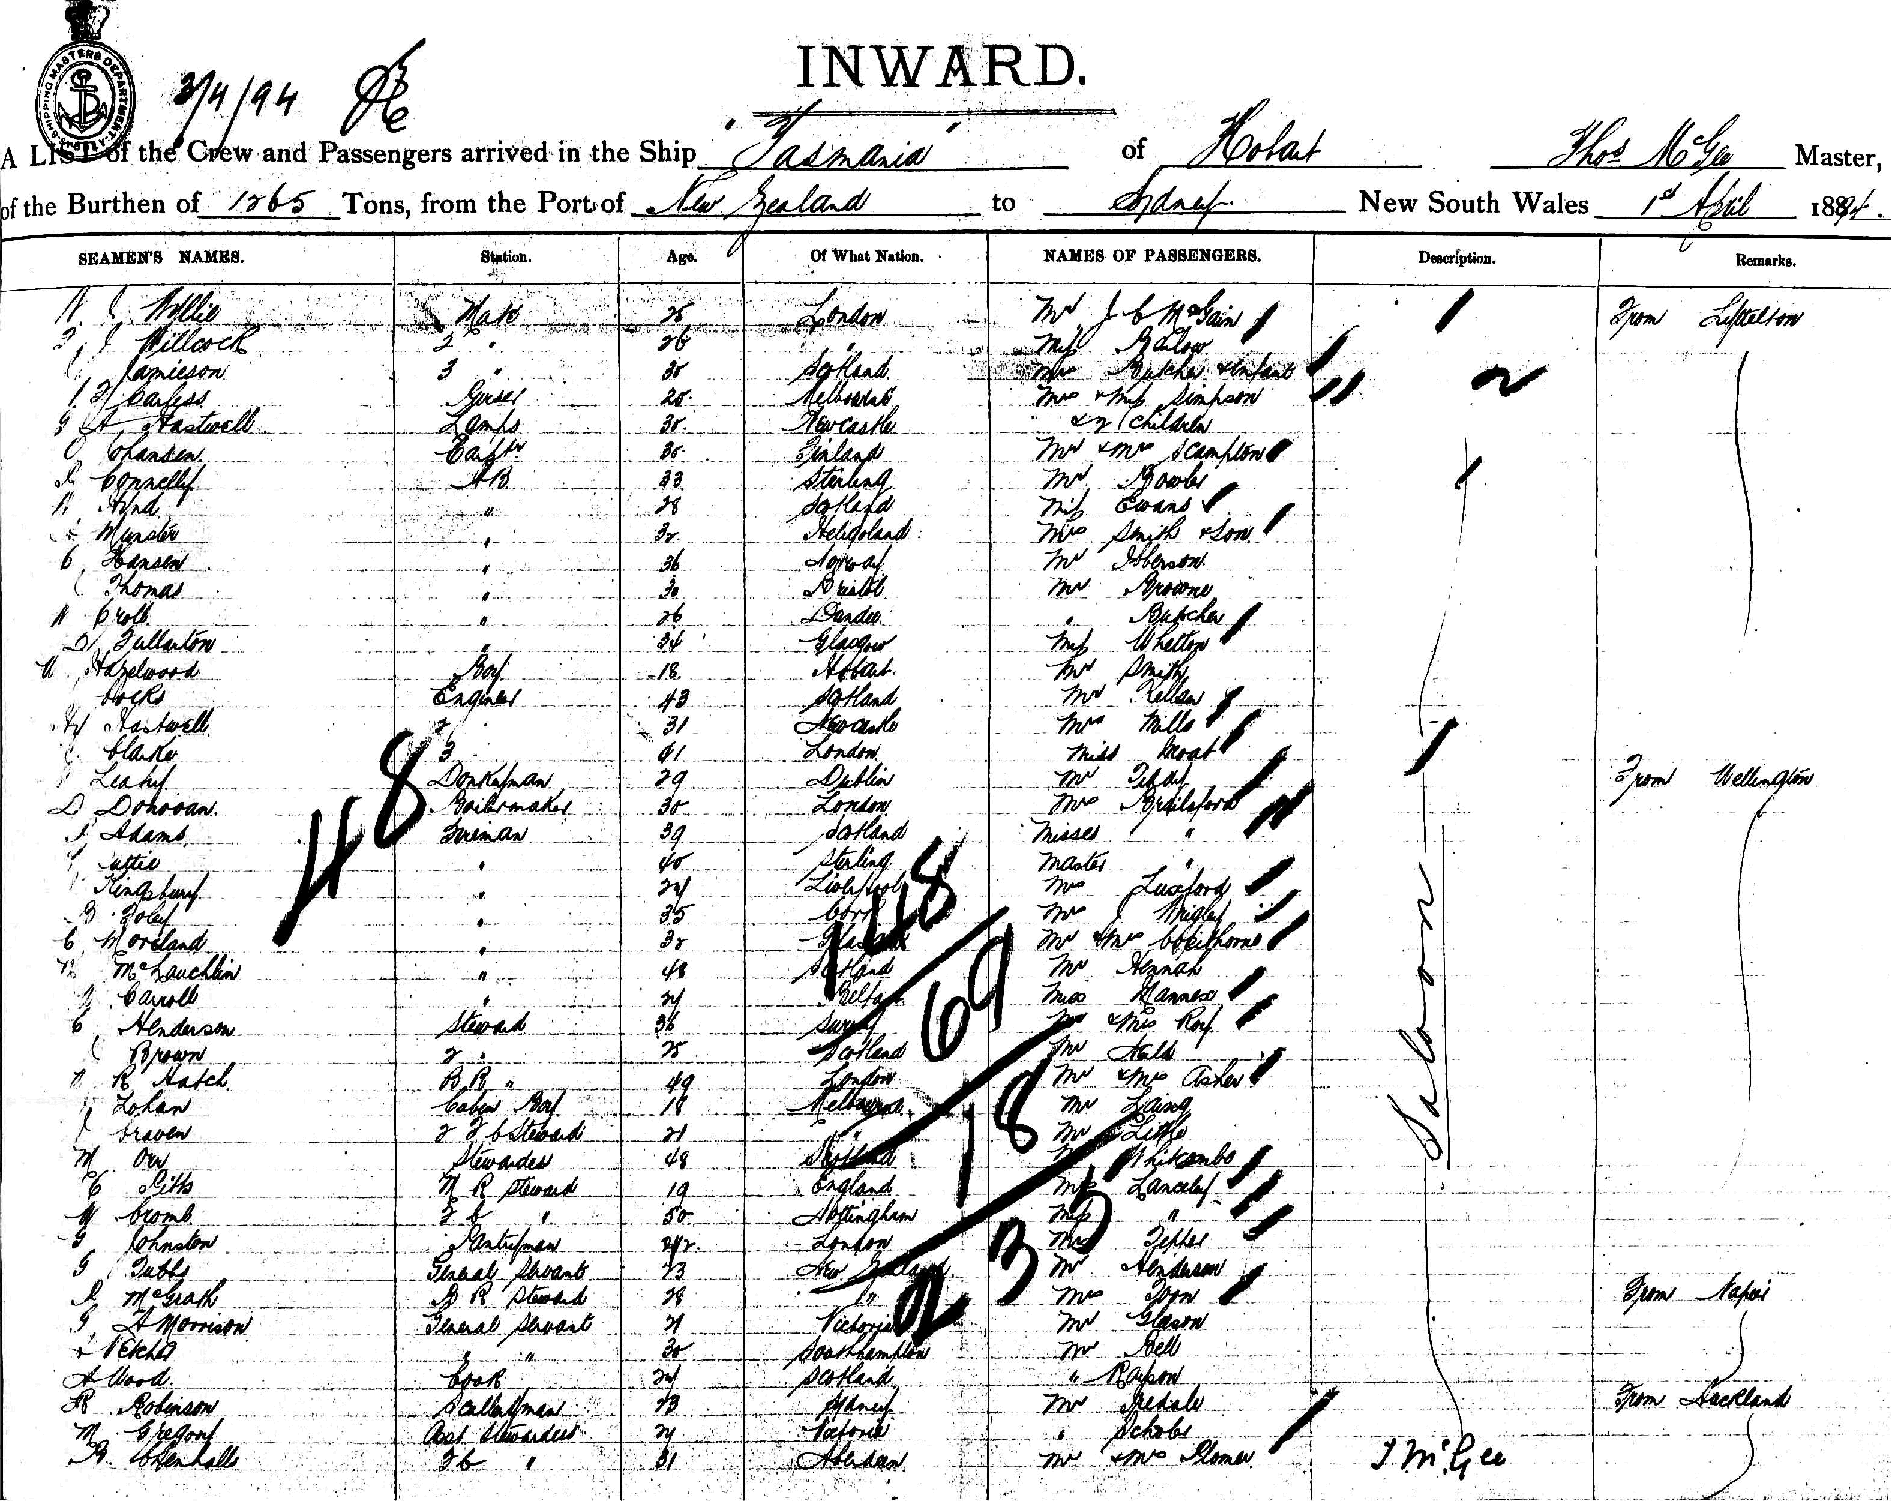 SHIPPING MASTERS DEPARTMENT SYDNEY
3/4/94
INWARD.
A LIST of the Crew and Passengers arrived in the Ship "Tasmania" of Hobart Thos McGee Master,
of the Burthen of 1265 Tons, from the Port of New Zealand to Sydney New South Wales 1st April 1894.
SEAMEN'S NAMES. Station. Age. Of What Nation. NAMES OF PASSENGERS. Description. Remarks.
Wyllie Mate 25 London Mr J C McGain From Lyttelton
Willcock 2 " 26 " Miss Barlow
Jamieson 3 " 30 Scotland Mrs Butcher & Infant
Carless Purser 20 Melbourne Mrs & Miss Simpson
Hastwell Lamps 30 Newcastle & 2 Children
Johansen Carptr 30 Finland Mr & Mrs Scampton
Connelly AB 33 Sterling Mr Bowler
Hynd " 28 Scotland Miss Evans
Munster " 32 Heligoland Mrs Smith & Son
C Hansen " 36 Norway Mr Ibberson
Thomas " 30 Bristol Mr Browne
Croll " 26 Dundee " Butcher
D Fullarton " 34 Glasgow Miss Whetton
Hazelwood Boy 18 Hobart Mr Smith
Cocks Engineer 43 Scotland Mr
Hastwell 2 31 Newcastle Mrs Mills
Clarke 3 41 London Miss Moat
Leahy Donkeyman 29 Dublin Mr From Wellington
D Donovan Boilermaker 30 London Mrs Brailsford
Adams Fireman 39 Scotland Misses "
" 40 Sterling Master "
Kingsbury " 24 Liverpool Mrs Luxford
Foley " 35 Cork Mr J Wrigley
C Moreland " 32 Mr & Mrs
McLauchlin " 48 Scotland Mr Hennah
Carroll " 24 Belfast Miss Manness
C Henderson Steward 36 Surrey & Mrs Roy
Brown 2 " 25 Scotland Mr
R Hatch B R " 49 London Mr & Mrs Asher
Lohan Cabin Boy 18 Melbourne Mr Laing
Craven 2 F C Steward 21 " Mr Little
M Orr Stewardess 48 Scotland Whitcombe
C Pitts M R Steward 19 England Lanceley
Cromb F C " 50 Nottingham Miss "
Johnston Pantryman 42 London
G Tubbs General Servant 23 New Zealand Mr Henderson
McGrath B R Steward 28 " Mrs From Napier
G A Morrison General Servant 21 Victoria Mr Gleson
" " 30 Southampton Mr Bell
A Wood Cook 24 Scotland "
R Robinson Sculleryman 23 Sydney Mr Iredale From Auckland
M Gregory Asst Stewardess 24 Victoria " Scholes
Chenhalls F C " 31 Aberdeen Mr & Mrs Plomer
Saloon
48
148
69
18
3
2
T McGee